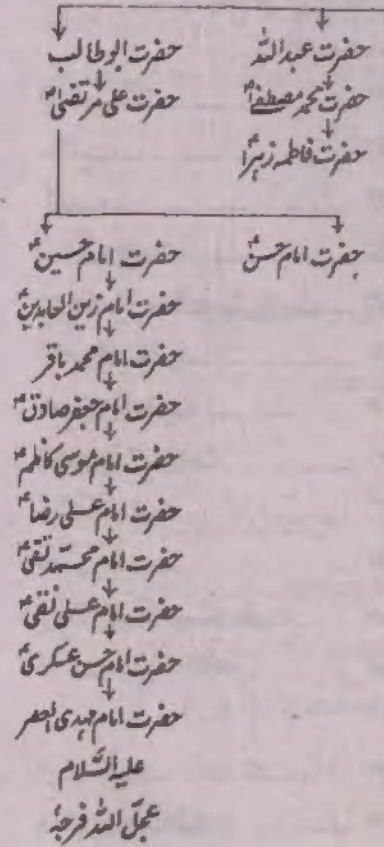 حضرت عبداللہ
حضرت محمد مصطفےٰؐ
حضرت فاطمہ زہراؑ
حضرت ابوطالب
حضرت علی مرتضیٰؑ
حضرت امام حسنؑ
حضرت امام حسینؑ
حضرت امام زین العابدینؑ
حضرت امام محمد باقر
حضرت امام جعفر صادقؑ
حضرت امام موسیٰ کاظمؑ
حضرت امام علی رضاؑ
حضرت امام محمّد تقیؑ
حضرت امام علی نقیؑ
حضرت امام حسن عسکریؑ
حضرت امام مہدی العصر
علیہ السّلام
عجّل اللہ فرجہٗ